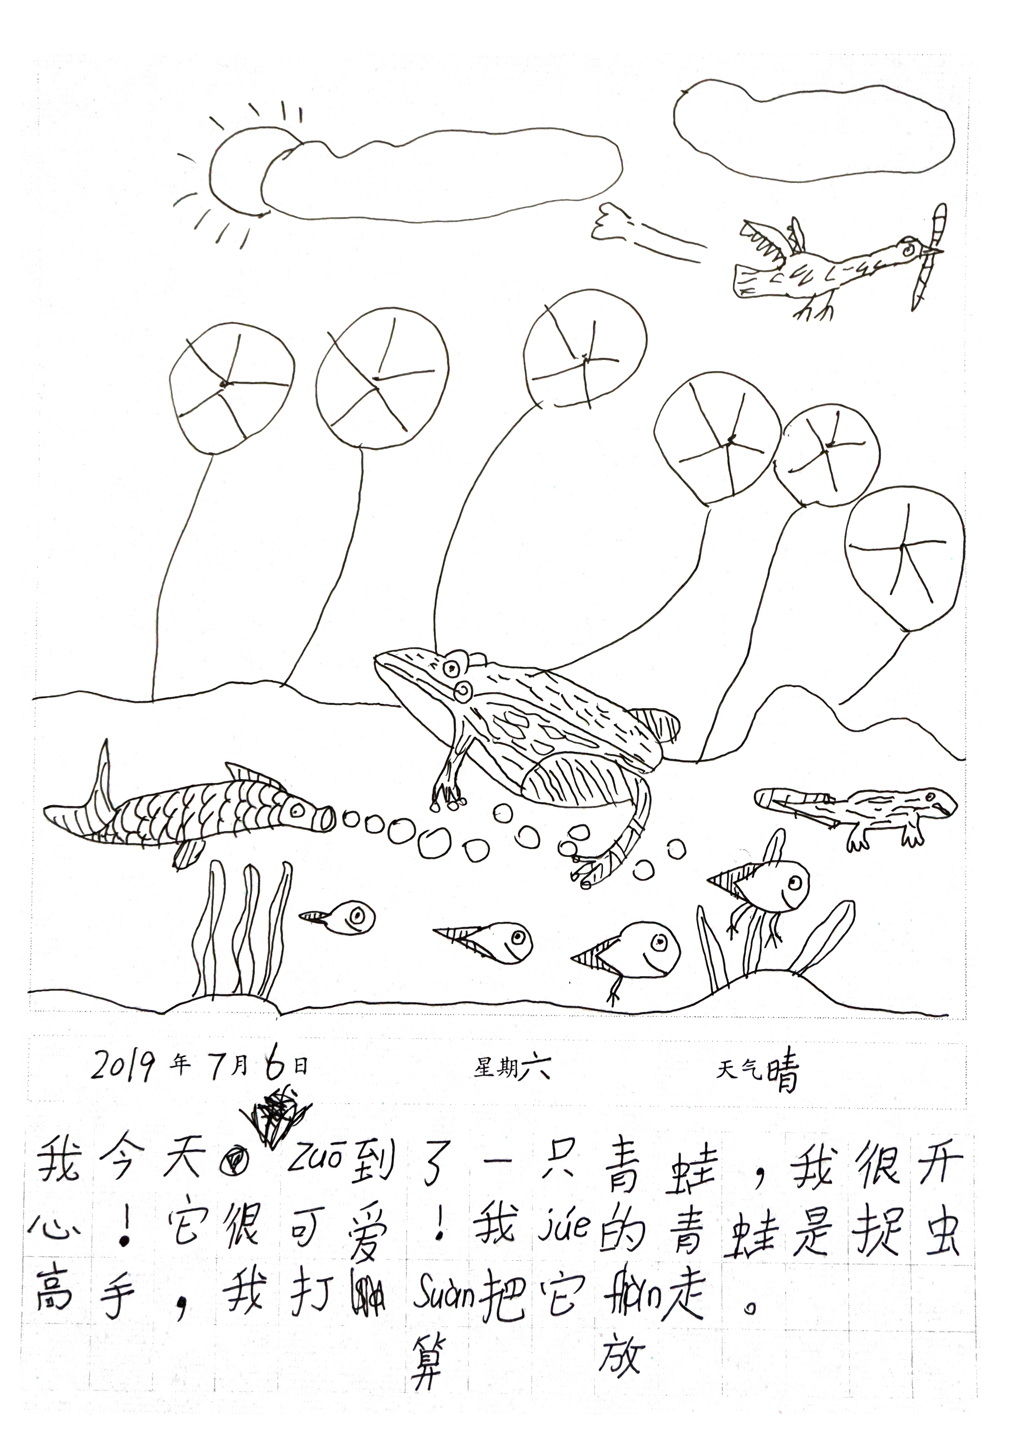 2019年7月6日 星期六 天气晴
我今天 zuō到了一只青蛙，我很开
心！它很可爱！我júe的青蛙是捉虫
高手，我打 suàn把它 走。
算 放